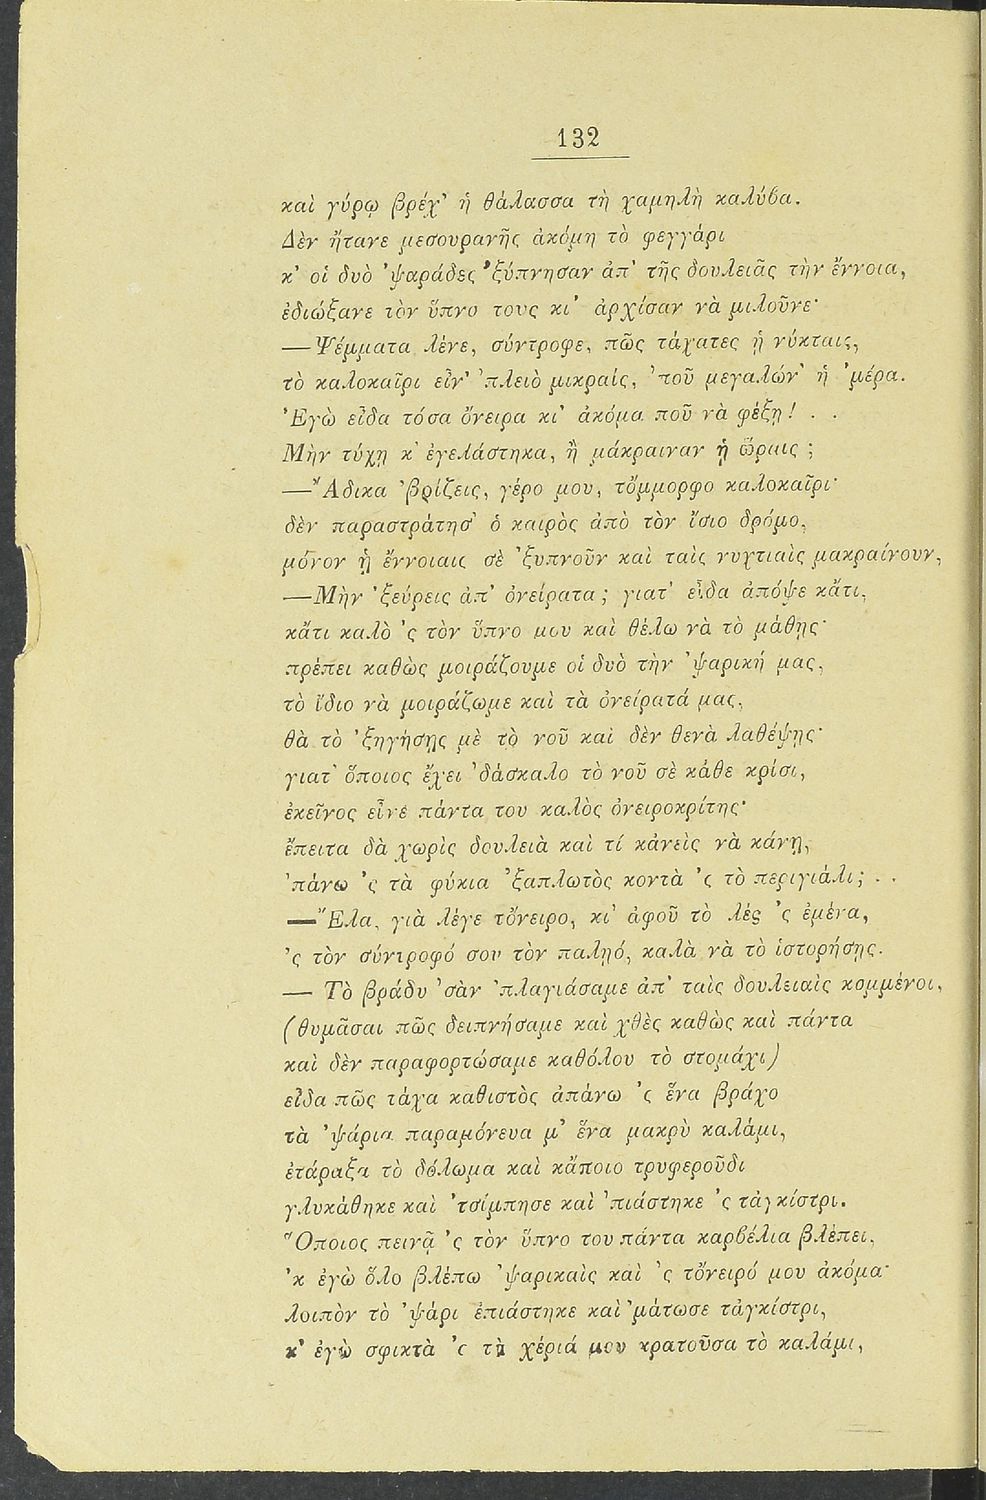 132
καὶ γύρῳ βρέχ' ἡ θάλασσα τὴ χαμηλὴ καλύβα.
Δὲν ἤτανε μεσουρανῆς ἀκόμη τὸ φεγγάρι
κ' οἱ δυὸ 'ψαράδες 'ξύπνησαν ἀπ' τῆς δουλειᾶς τὴν ἔννοια,
ἐδιώξανε τὸν ὕπνο τους κι' ἀρχίσαν νὰ μιλοῦνε·
—Ψέμματα λένε, σύντροφε, πῶς τάχατες ᾑ νύκταις,
τὸ καλοκαῖρι εἶν' 'πλειὸ μικραίς, 'ποῦ μεγαλών' ἡ 'μέρα.
Ἐγὼ εἶδα τόσα ὄνειρα κι' ἀκόμα ποῦ νὰ φέξῃ! . .
Μὴν τύχῃ κ' ἐγελάστηκα, ἢ μάκραιναν ᾑ ὥραις ;
—Ἄδικα 'βρίζεις, γέρο μου, τὤμμορφο καλοκαῖρι·
δὲν παραστράτησ' ὁ καιρὸς ἀπὸ τὸν ἴσιο δρόμο,
μόνον ᾑ ἔννοιαις σὲ 'ξυπνοῦν καὶ ταὶς νυχτιαὶς μακραίνουν,
—Μὴν 'ξεύρεις ἀπ' ὀνείρατα; γιατ' εἶδα ἀπόψε κἄτι,
κἄτι καλὸ 'ς τὸν ὕπνο μου καὶ θέλω νὰ τὸ μάθῃς·
πρέπει καθὼς μοιράζουμε οἱ δυὸ τὴν 'ψαρική μας,
τὸ ἴδιο νὰ μοιράζωμε καὶ τὰ ὀνείρατά μας,
θὰ τὸ 'ξηγήσῃς μὲ τὸ νοῦ καὶ δὲν θενὰ λαθέψῃς·
γιατ' ὅποιος ἔχει 'δάσκαλο τὸ νοῦ σὲ κάθε κρίσι,
ἐκεῖνος εἶνε πάντα του καλὸς ὀνειροκρίτης·
ἔπειτα δὰ χωρὶς δουλειὰ καὶ τί κἀνεὶς νὰ κάνῃ,
'πάνω 'ς τὰ φύκια 'ξαπλωτὸς κοντὰ 'ς τὸ περιγιάλι; . .
—Ἔλα, γιὰ λέγε τὤνειρο, κι' ἀφοῦ τὸ λὲς 'ς ἐμένα,
'ς τὸν σύντροφό σου τὸν παλῃό, καλὰ νὰ τὸ ἱστορήσῃς.
— Τὸ βράδυ 'σὰν 'πλαγιάσαμε ἀπ' ταὶς δουλειαὶς κομμένοι,
(θυμᾶσαι πῶς δειπνήσαμε καὶ χθὲς καθὼς καὶ πάντα
καὶ δὲν παραφορτώσαμε καθόλου τὸ στομάχι)
εἶδα πῶς τάχα καθιστὸς ἀπάνω 'ς ἕνα βράχο
τὰ 'ψάρια παραμόνευα μ' ἕνα μακρὺ καλάμι,
ἐτάραξα τὸ δόλωμα καὶ κἄποιο τρυφεροῦδι
γλυκάθηκε καὶ 'τσίμπησε καὶ 'πιάστηκε 'ς τἀγκίστρι.
Ὅποιος πεινᾷ 'ς τὸν ὕπνο του πάντα καρβέλια βλέπει,
'κ ἐγὼ ὅλο βλέπω 'ψαρικαὶς καὶ 'ς τὤνειρό μου ἀκόμα·
λοιπὸν τὸ 'ψάρι ἐπιάστηκε καὶ 'μάτωσε τἀγκίστρι,
κ' ἐγὼ σφικτὰ 'ς τὰ χέριά μου κρατοῦσα τὸ καλάμι,